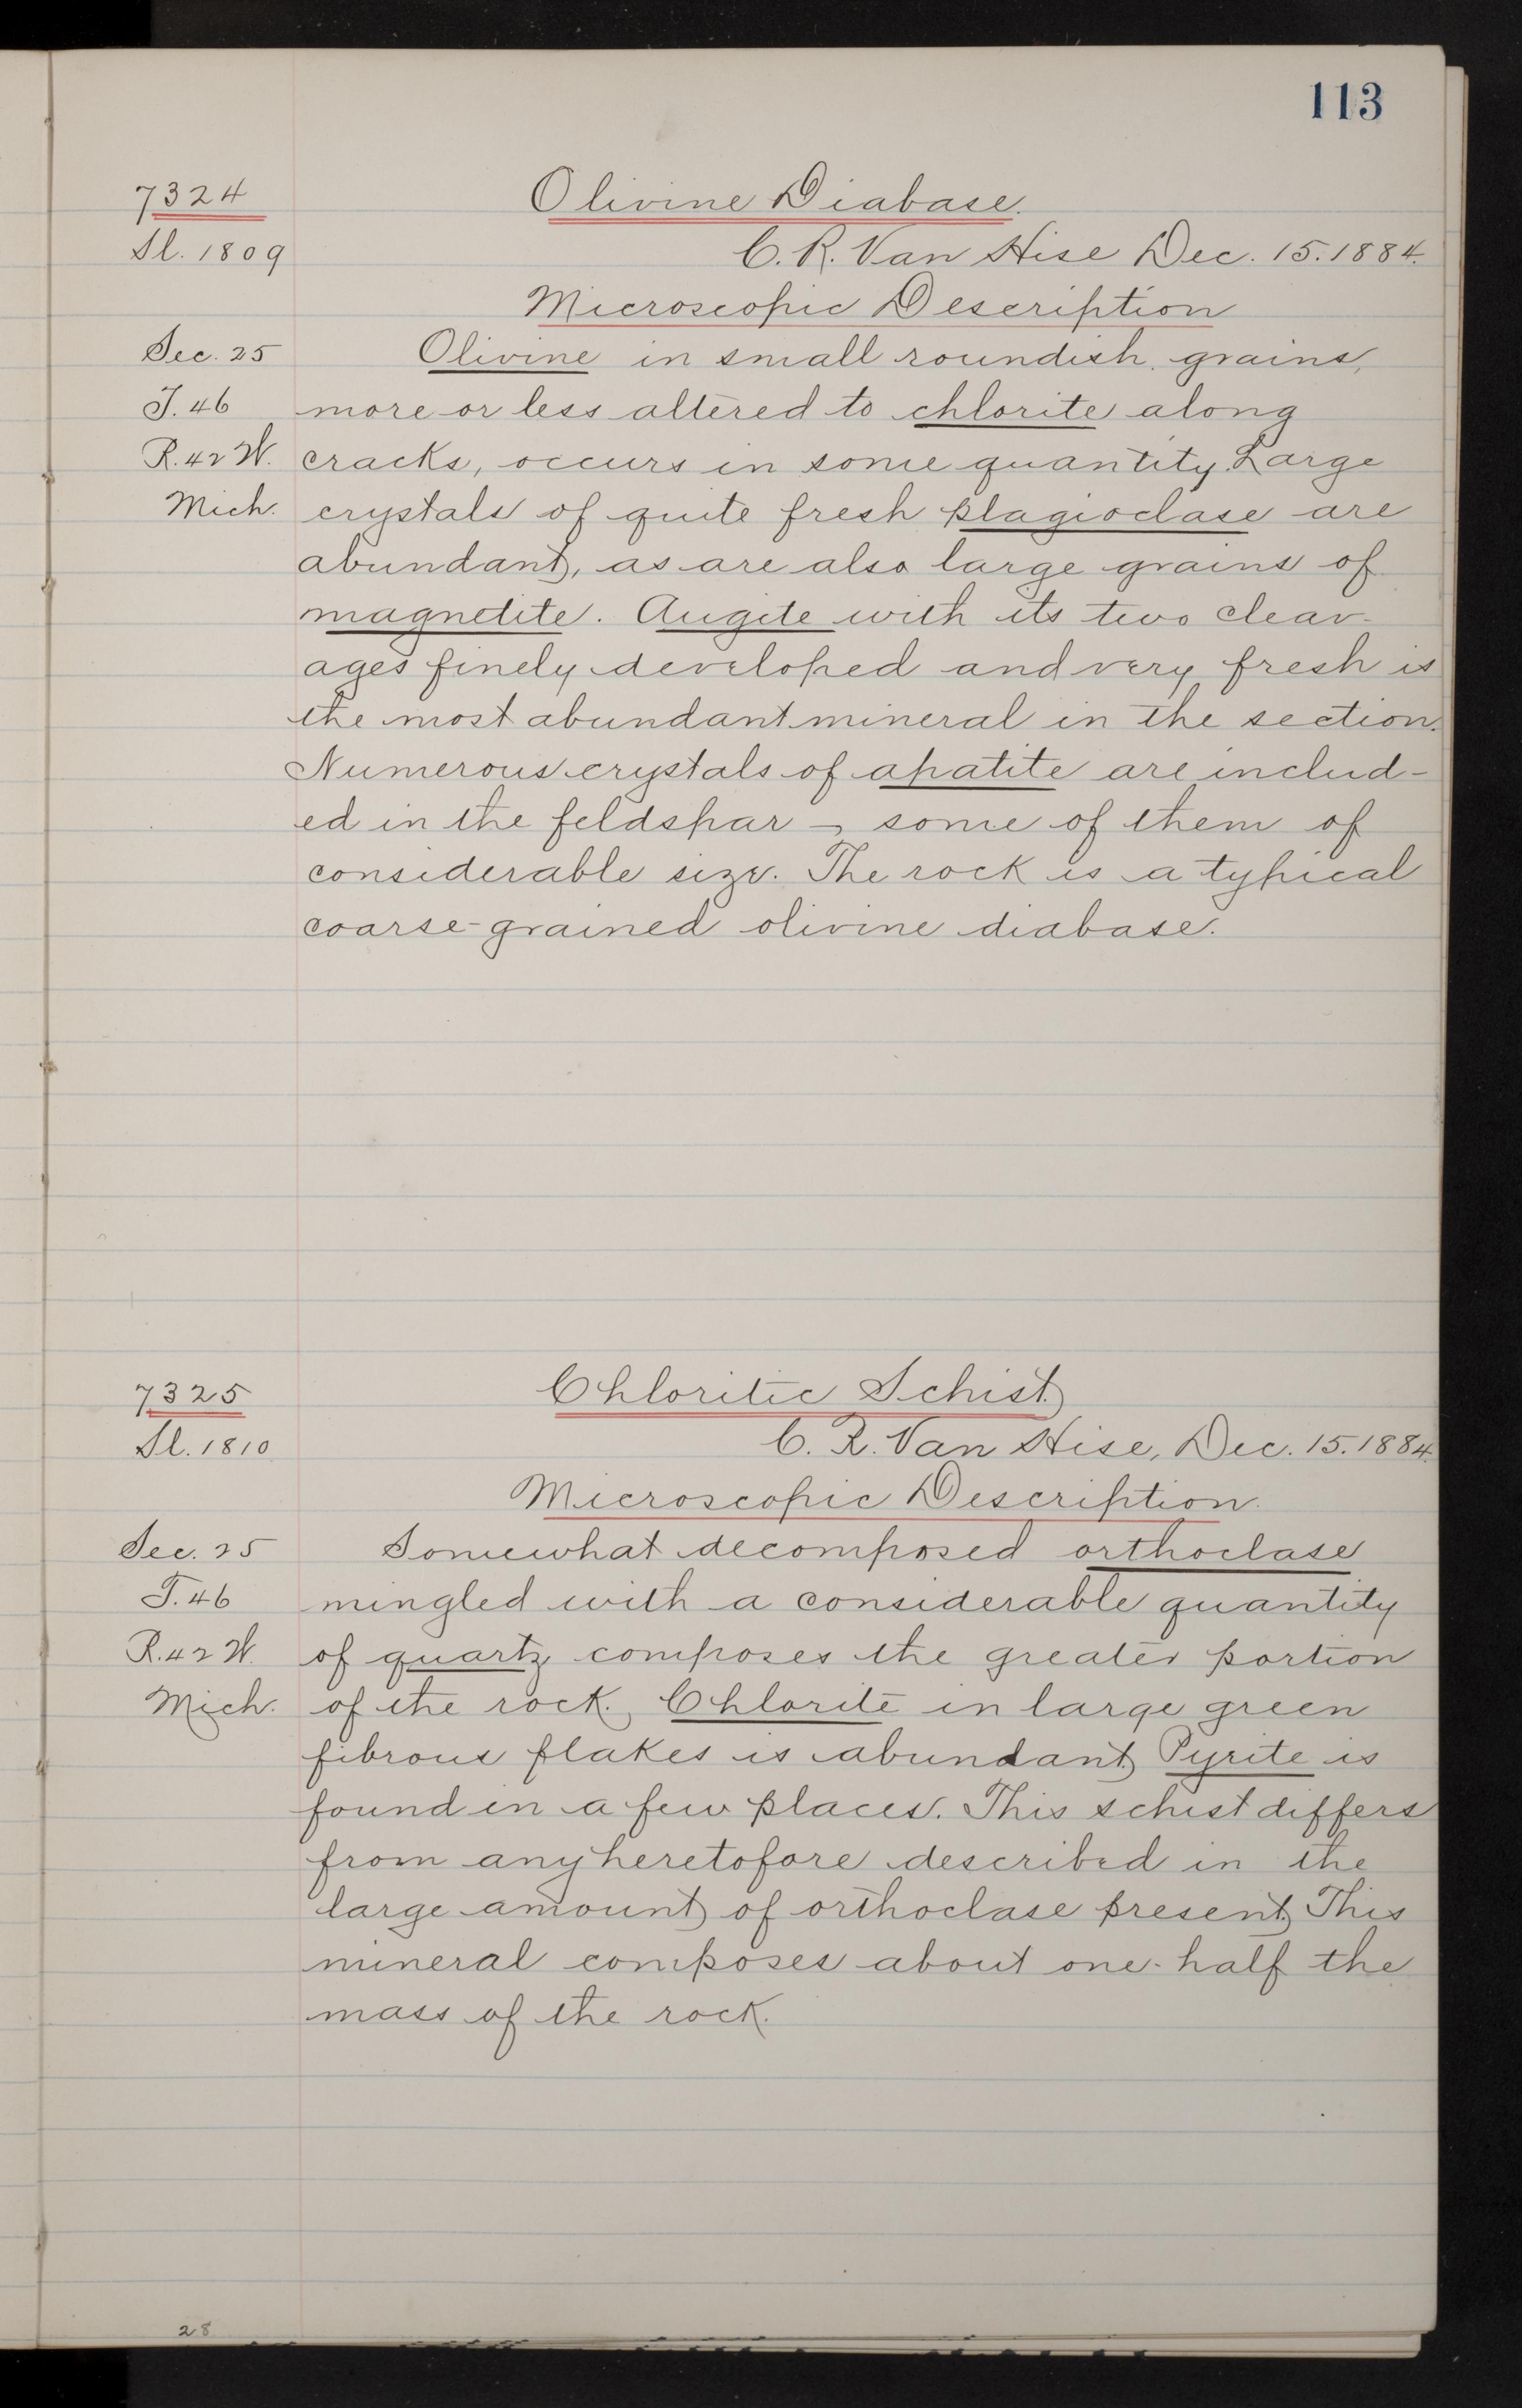 113
7324
Olivine Diabase.
Sl. 1809
C. R. Van Hise Dec. 15. 1884.
Microscopic Description
Sec. 25
Olivine in small roundish grains,
T. 46
more or less altered to chlorite along
R. 42 W.
cracks, occurs in some quantity. Large
Mich.
crystals of quite fresh plagioclase are
abundant, as are also large grains of
magnetite. Augite with its two cleav-
ages finely developed and very fresh is
the most abundant mineral in the section.
Numerous crystals of apatite are includ-
ed in the feldspar -, some of them of
considerable size. The rock is a typical
coarse-grained olivine diabase.
7325
Chloritic Schist.
Sl. 1810
C. R. Van Hise, Dec. 15. 1884.
Microscopic Description.
Sec. 25
Somewhat decomposed orthoclase
T. 46
mingled with a considerable quantity
R. 42 W.
of quartz composes the greater portion
Mich.
of the rock. Chlorite in large green
fibrous flakes is abundant. Pyrite is
found in a few places. This schist differs
from any heretofore described in the
large amount of orthoclase present. This
mineral composes about one-half the
mass of the rock.
28